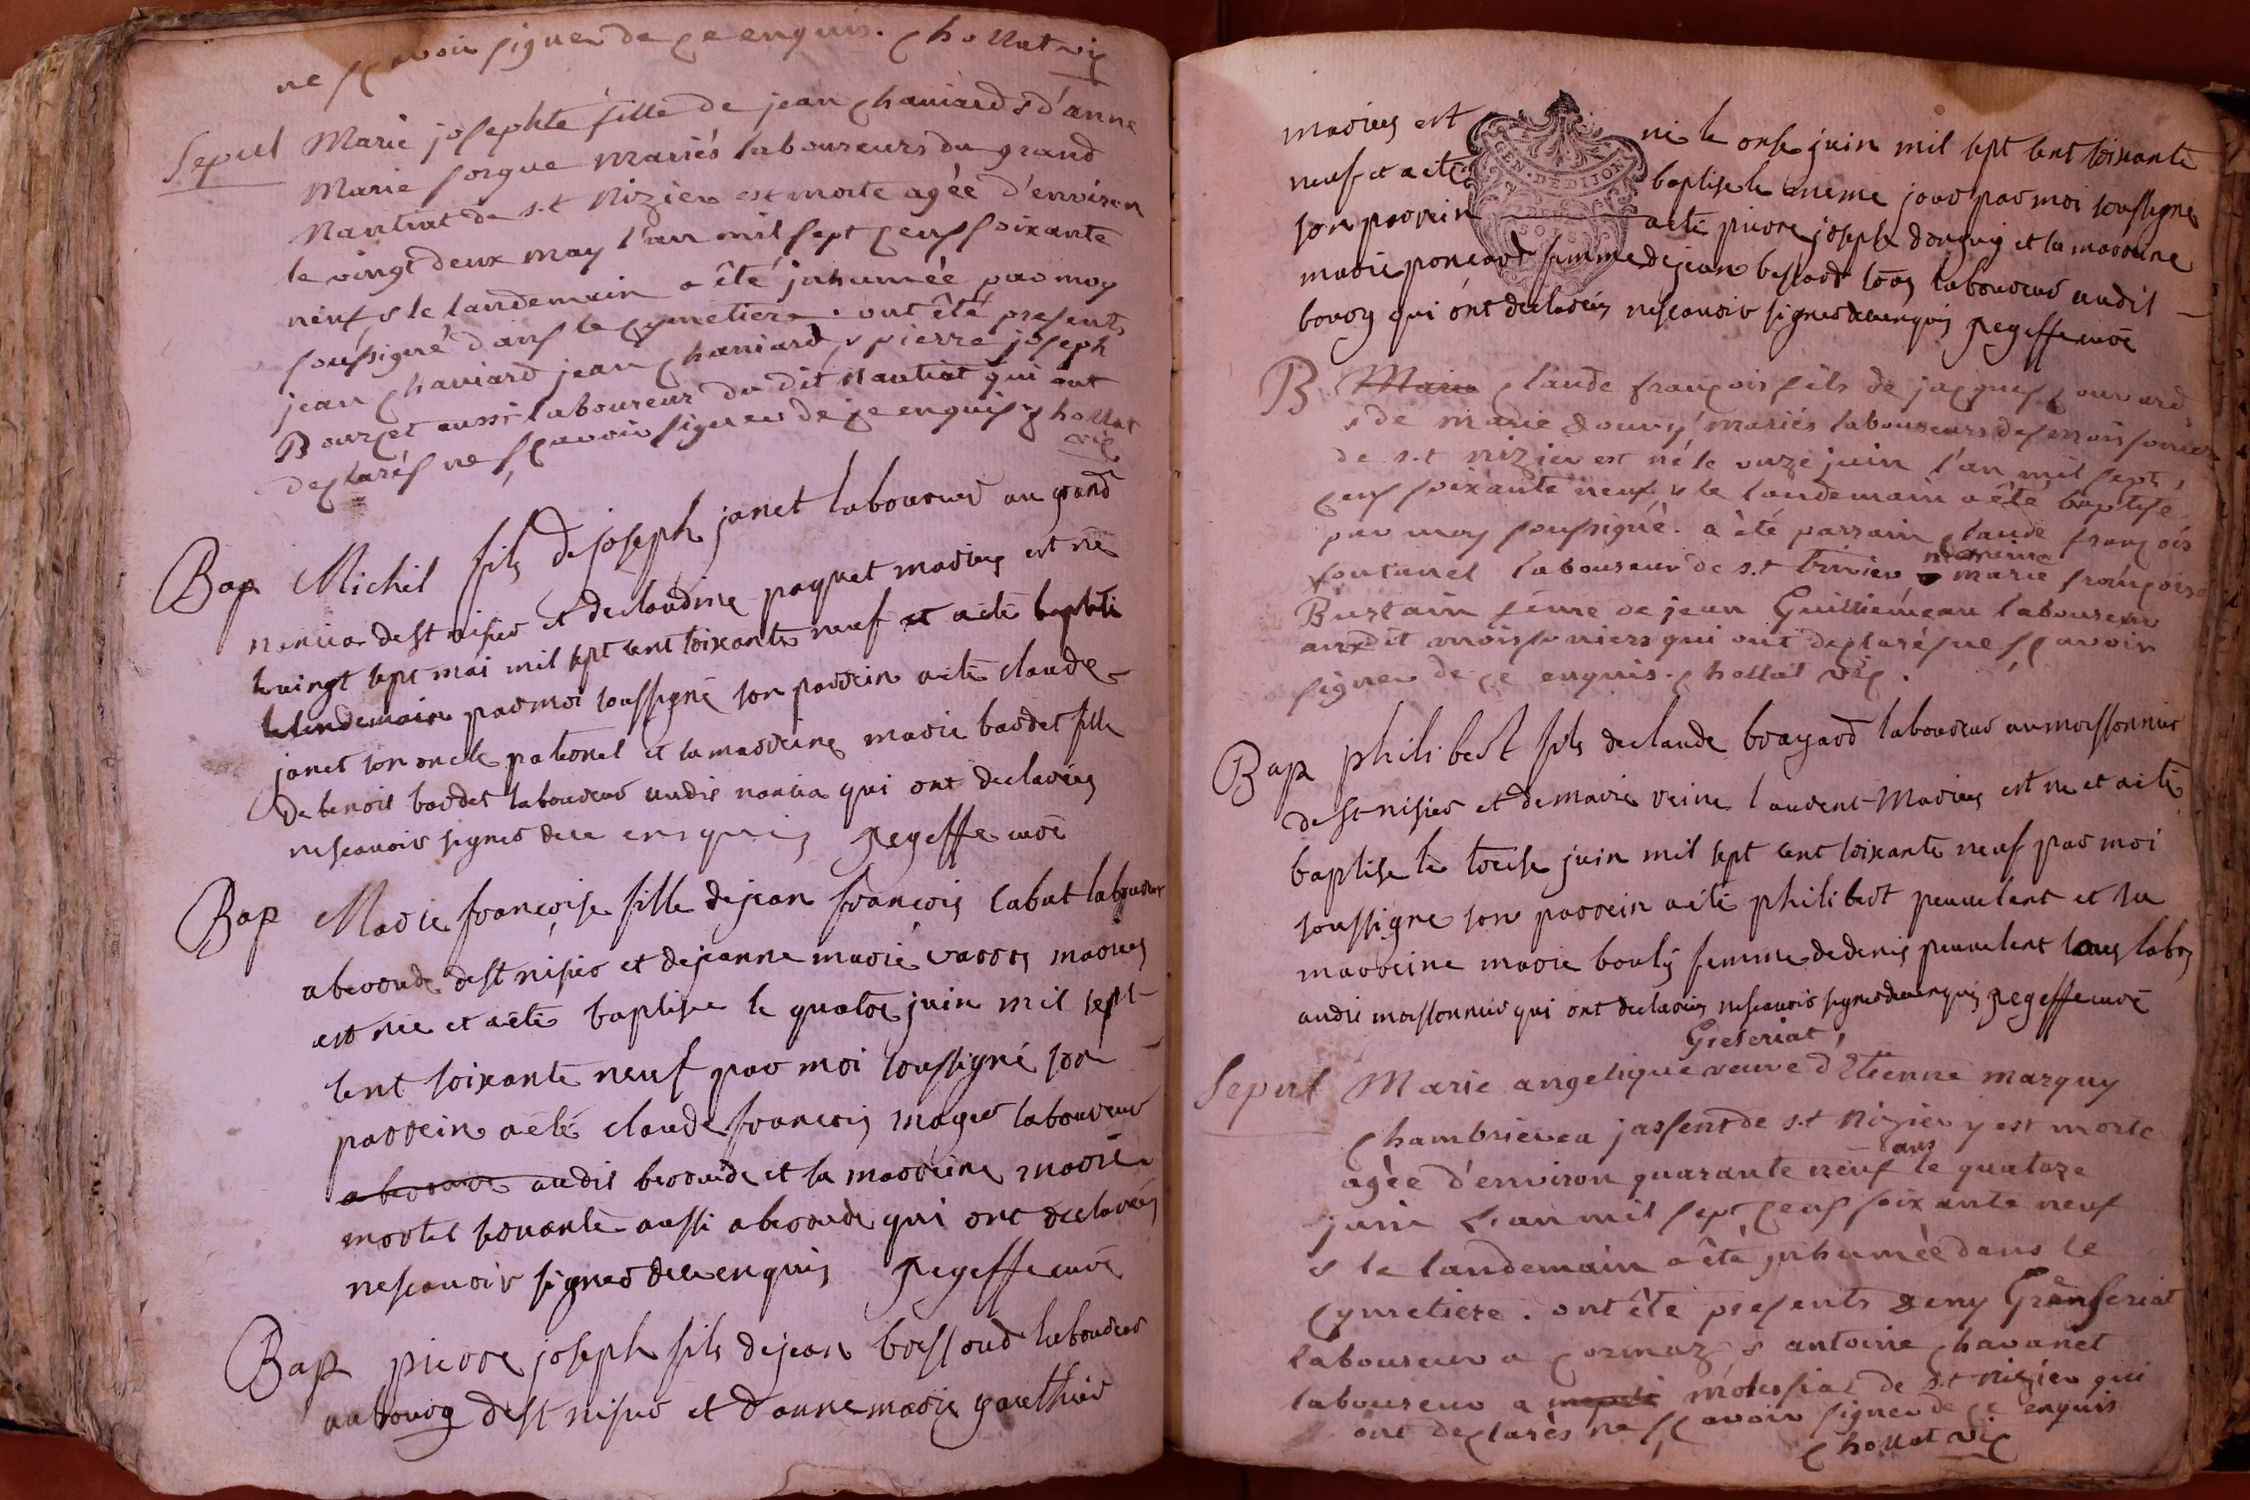 ne sçavoir signer de ce enquis. chollat vic
Sepul Marie josephte fille de jean chaniard & d'anne
Marie sorgue mariés laboureurs du grand
Nantiat de s.t Nizier est morte agéé d'environ
le vingt deux may l'an mil sept cens soixante
neuf & le landemain a êté inhuméé par moy
soussigné dans le cymetiere. ont êté presents
jean chaniard jean chaniard & pierre joseph
Bourcet aussi laboureur du dit Nantiat qui ont
declarés ne sçavoir signer de ce enquis chollat
vic
Bap Michel fils de joseph janet laboureur au grand
nancia de st nisier et de claudine paquet maries est né
le vingt sept mai mil sept cent soixante neuf et a eté baptisé
le lendemain par moi soussigné son parrein a eté claude
janet son oncle paternel et la marreine marie bardet fille
de benoit bardet laboureur audit nancia qui ont declarés
ne scavoir signer de ce enquis gegeffe curé
Bap Marie françoise fille de jean francois cabut laboureur
a beroude de st nisier et de jeanne marie varros maries
est née et a eté baptisée le quatre juin mil sept
cent soixante neuf par moi soussigné son
parrein a eté claude francois moyer laboureur
a beroude audit beroude et la marreine marie
mortel servante aussi a beroude qui ont declarés
ne scavoir signer de ce enquis gegeffe curé
Bap pierre joseph fils de jean bressoud laboureur
au bourg de st nisier et d'anne marie gauthier
maries est né le onse juin mil sept cent soixante
neuf et a eté baptisé le meme jour par moi soussigné
son parrein a eté pierre joseph donguy et la marreine
marie poncard femme de jean bessard tous laboureurs audit
bourg qui ont declarés ne scavoir signer de ce enquis gegeffe curé
GEN. DE DIJON
B Marie claude françois fils de jacques convard
& de marie douvry mariés laboureurs des moissoniers
de s.t nizier est né le onze juin l'an mil sept
cens soixante neuf & le landemain a êté baptisé
par moy soussigné. a êté parrain claude françois
fontanel laboureur de s.t trivier & marie françoise
mareine
Bustain feme de jean Guillemeau laboureur
auxdit moissoniers qui ont declarés ne sçavoir
signer de ce enquis. chollat vic.
Bap philibert fils de claude brayard laboureur au moissonnier
de st nisier et de marie reine laurent Maries est né et a eté
baptisé le treise juin mil sept cent soixante neuf par moi
soussigné son parrein a eté philibert peuvelent et sa
marreine marie bouly femme de denis peuvelent tous labors
audit moissonnier qui ont declarés ne scavoir signer de ce enquis gegeffe curé
Greferiat,
Sepul Marie angelique veuve d'Etienne marguy
chambriere a jassent de s.t Nizier y est morte
agéé d'environ quarante neuf ans le quatorze
juin l'an mil sept cens soixante neuf
& le landemain a êté inhuméé dans le
cymetiere. ont êté presents deny Grenferiat
laboureur a cormoz & antoine chavanet
laboureur a molessiat de s.t nizier qui
ont declarés ne sçavoir signer de ce enquis
chollat vic